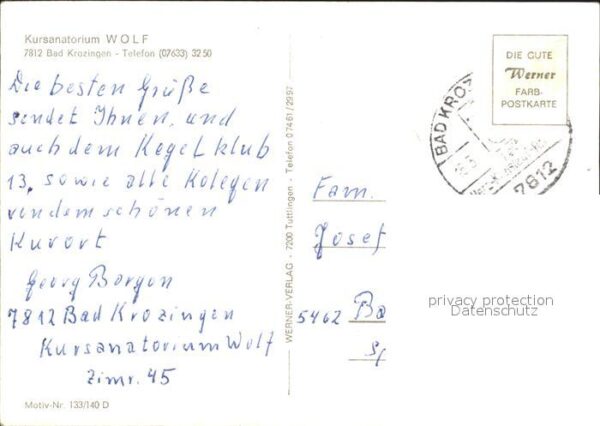 Kursanatorium WOLF
7812 Bad Krozingen - Telefon (07633) 32 50
Die besten Grüße
sendet Ihnen, und
auch dem Kegelklub
13, sowie alle Kolegen
von dem schönen
Kurort
Georg Borgon
7812 Bad Krozingen
Kursanatorium Wolf
Zimr. 45
Motiv-Nr. 133/140 D
WERNER-VERLAG - 7200 Tuttlingen - Telefon 07461/2957
DIE GUTE
Werner
FARB-
POSTKARTE
BAD KROZ
7812
Fam.
Josef
5462 Ba
privacy protection
Datenschutz